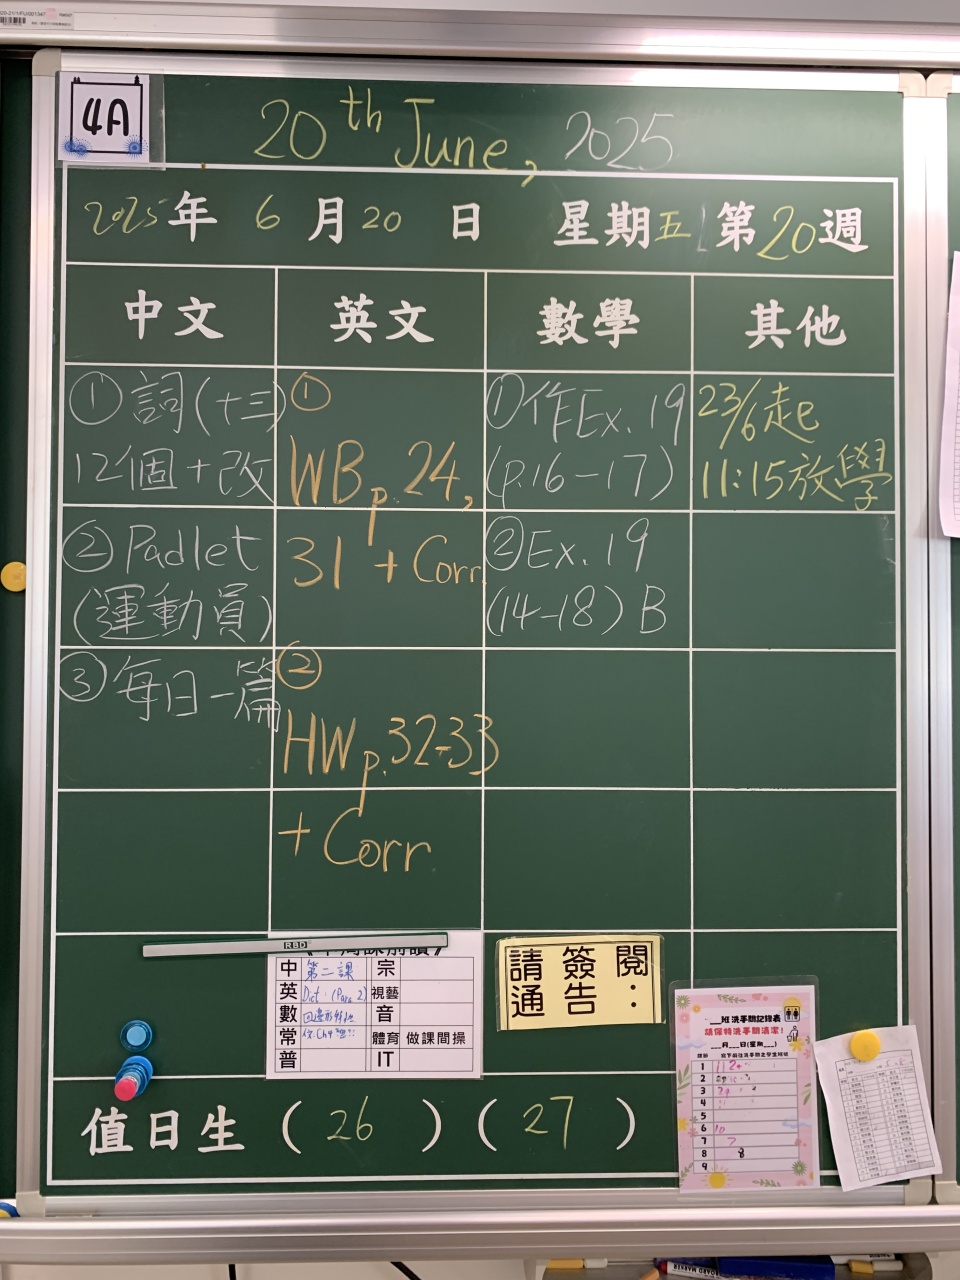 4A
20th June, 2025
2025年 6月20日 星期五 第20週
中文 英文 數學 其他
①詞(十三)
12個+改
②Padlet
(運動員)
③每日一篇
①
WB p.24,
31 + Corr.
②
HW p.32-33
+ Corr.
①作Ex. 19
(p.16-17)
②Ex. 19
(14-18) B
23/6起
11:15放學
RBD
中 第二課 宗
英 Dict. (Para 2) 視藝
數 音
常 體育 做課間操
普 IT
請簽閱
通告：
班洗手間記錄表
請保持洗手間清潔!
月 日(星期 )
1
2
3
4
5
6 10
7 7
8 8
9
值日生 (26) (27)
BOARD MARKER